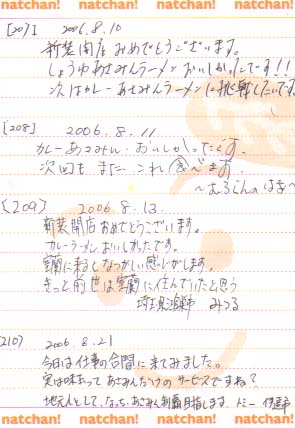 natchan! natchan! natchan! natchan! natchan!
[207] 2006.8.10
新装開店おめでとうございます。
しょうゆあさみんラーメンおいしかったです!!
次はカレーあさみんラーメンに挑戦したいです
[208] 2006.8.11
カレーあさみん、おいしかったです。
次回も また これ食べます。
〜むろらんの
(209) 2006.8.13
新装開店おめでとうございます。
カレーラーメンおいしかったです。
室蘭に来るとなつかしい感じがします。
きっと前世は室蘭に住んでいたと思う
埼玉県 みつる
(210) 2006.8.21
今日は仕事の合間に来てみました。
実は味わって あさみんだけの サービスですね?
地元人として、なっちあさみん制覇目指します。トミー 伊達市
natchan! natchan! natchan! natchan! natchan!